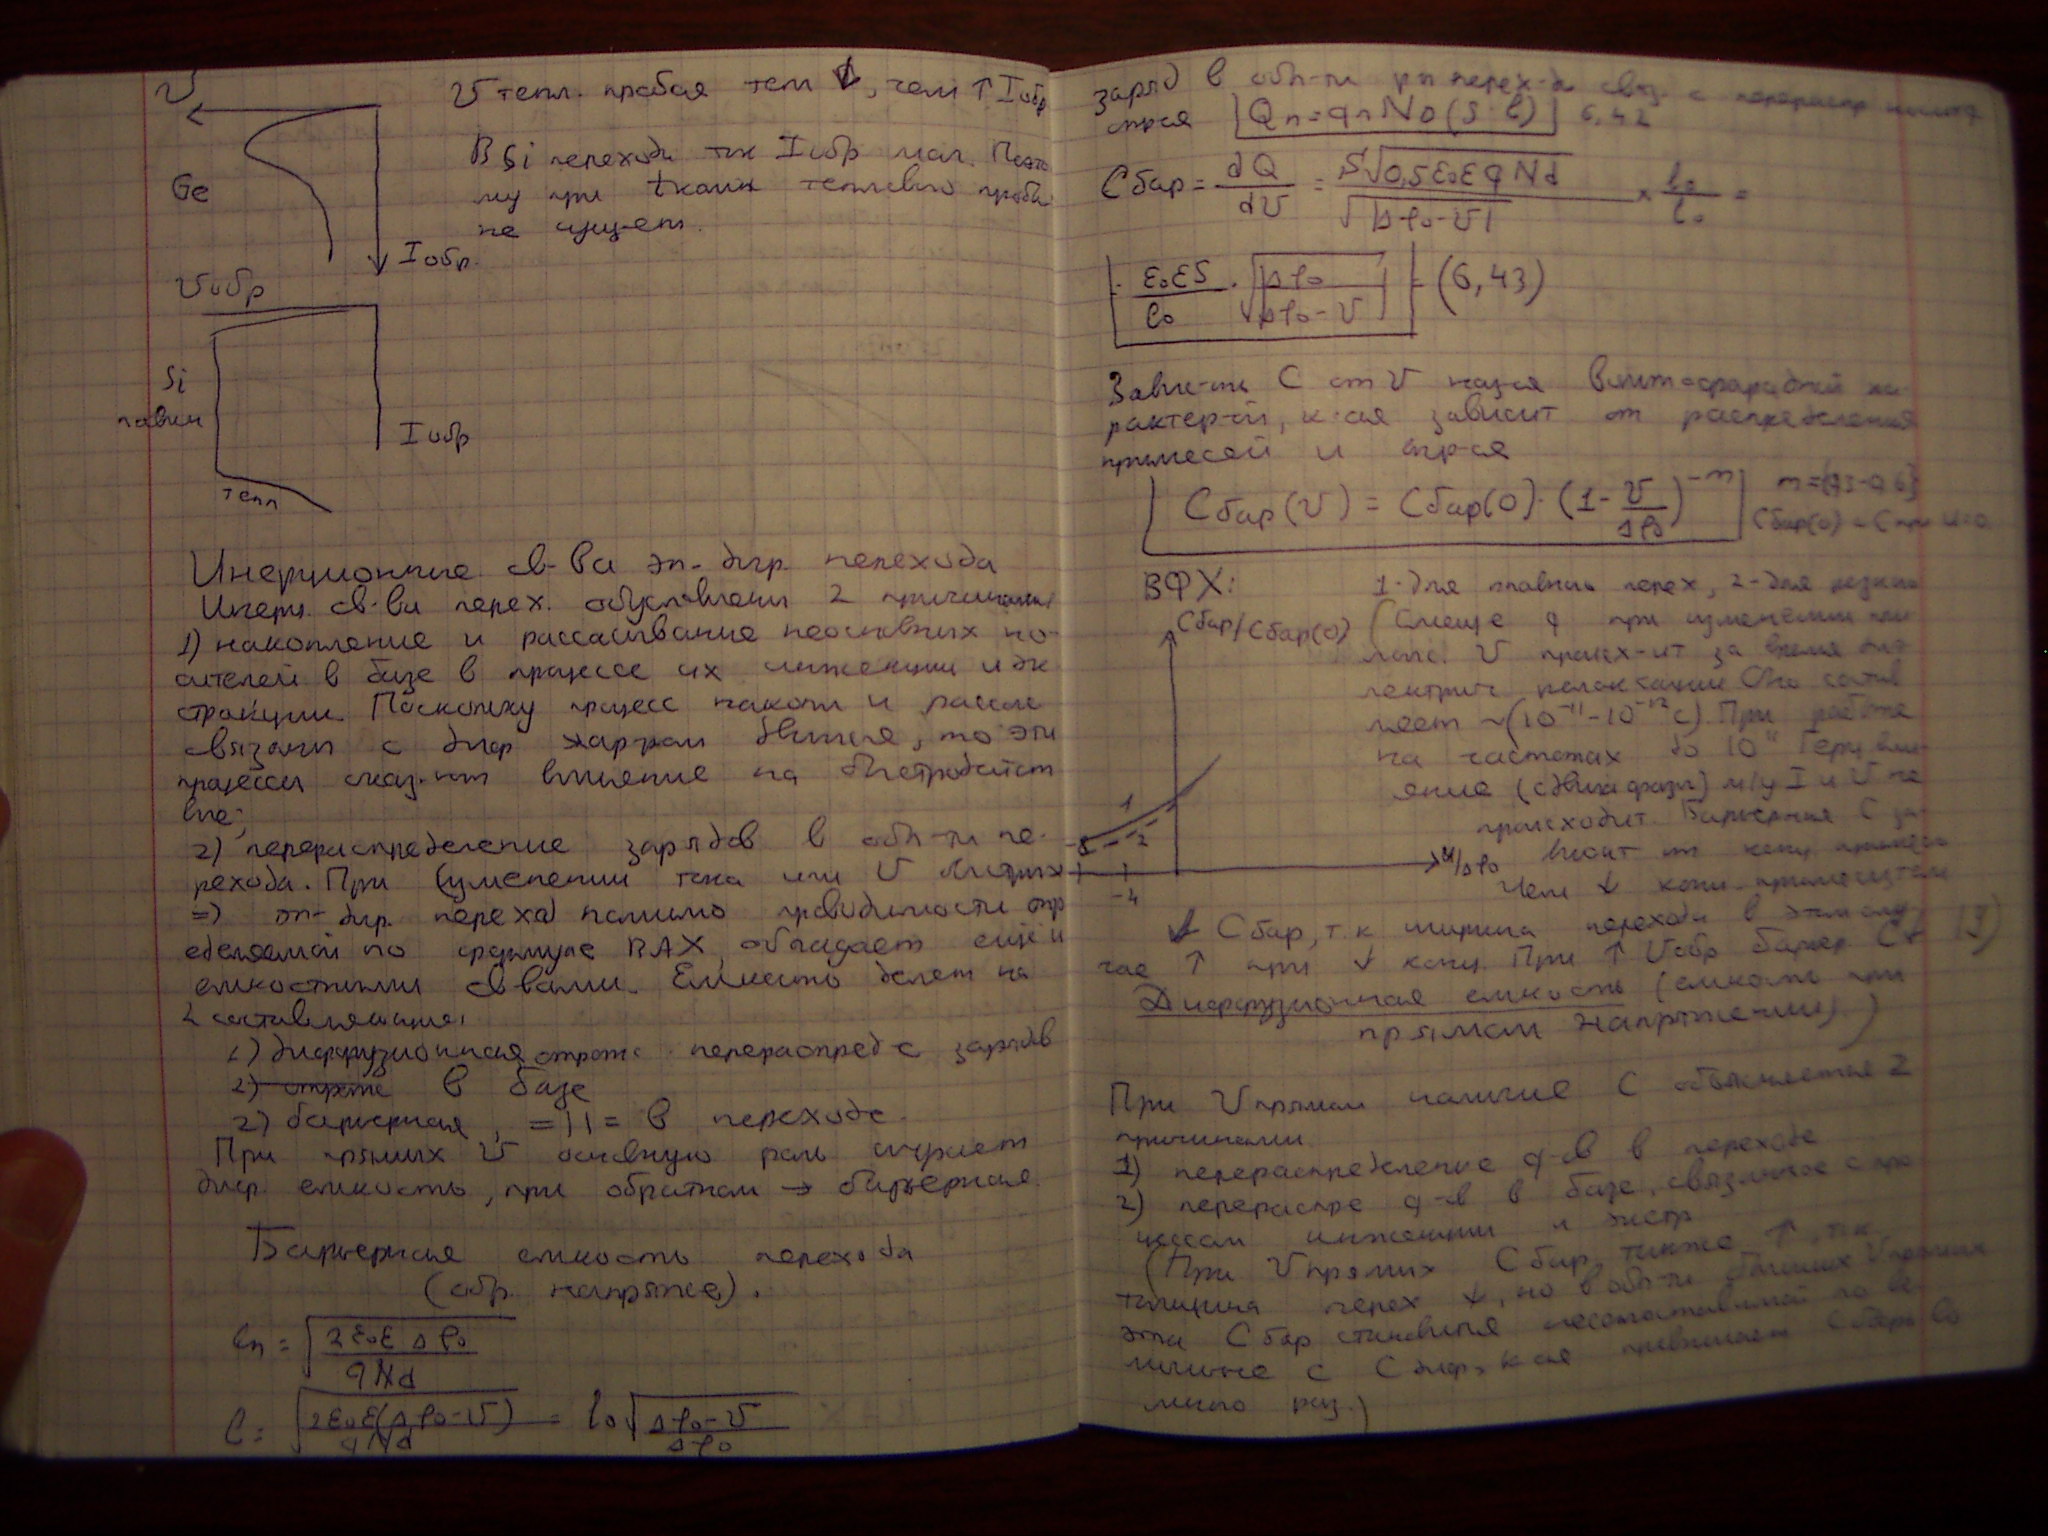 U
U тепл. пробоя тем ↓, чем ↑ Iобр
Ge
В Si переходе ток Iобр мал. Поэто
му при tкомн теплового пробо
не сущ-ет.
Iобр.
Uобр
Si
лавин
Iобр
тепл
Инерционные св-ва эл-дыр. перехода
Инерц. св-ва перех. обусловлены 2 причинами
1) накопление и рассасывание неосновных но-
сителей в базе в процессе их инжекции и эк
стракции. Поскольку процесс накопл и рассас
связаны с диф хар-ром движения, то эти
процессы оказ-ют влияние на быстродейст
вие;
2) перераспределение зарядов в обл-ти пе-
рехода. При изменении тока или U
=> эл-дыр. переход помимо проводимости опр
еделяемой по формуле ВАХ, обладает ещё и
емкостными св-вами. Емкость делят на
2 составляющие:
1) диффузионная отраж. перераспред-е зарядов
2) отраж в базе
2) барьерная, =||= в переходе.
При прямых U основную роль играет
диф. емкость, при обратном → барьерная.
Барьерная емкость перехода
(обр. напряжен).
ln = √(2ε₀ε Δφ₀ / qNd)
l = √(2ε₀ε(Δφ₀-U) / qNd) = l₀√(Δφ₀-U / Δφ₀)
заряд в обл-ти pn перех-да связ. с перераспр
Qn=qnND(S·l) 6,42
Cбар = dQ/dU = S√(0,5ε₀εqNd) / √(Δφ₀-U) × l₀/l₀ =
ε₀εS/l₀ · √(Δφ₀ / Δφ₀-U) (6,43)
Завис-ть C от U наз-ся вольт-фарадной ха-
рактер-ой, к-ая зависит от распределения
примесей и опр-ся
Cбар(U) = Cбар(0)·(1-U/Δφ₀)^-m
Cбар(0) - C при U=0
ВФХ:
1-для плавного перех, 2-для резкого
Cбар/Cбар(0)
q при изменении
U происх-ит за время
релаксации Оно состав
ляет ~(10⁻¹¹-10⁻¹²с) При работе
на частотах до 10¹¹ Герц вли-
яние (сдвига фазы) м/у I и U не
происходит. Барьерная C за-
висит от конц. примеси
Чем ↓ конц. примеси тем
1
2
-8
-4
U/Δφ₀
↓ Cбар, т.к ширина перехода в этом слу
чае ↑ при ↓ конц. При ↑ Uобр барьер. C↓
Диффузионная емкость (емкость при
прямом напряжении)
При Uпрямом наличие C объясняется 2
причинами
1) перераспределение q-ов в переходе
2) перераспре q-ов в базе, связанное с про
цессом инжекции и экстр
(При Uпрямых Cбар также ↑, т.к.
толщина перех ↓, но в обл-ти больших Uпрямых
эта Cбар становится несопоставимой по ве
личине с Cдиф, к-ая превышает Cбарьер во
много раз.)